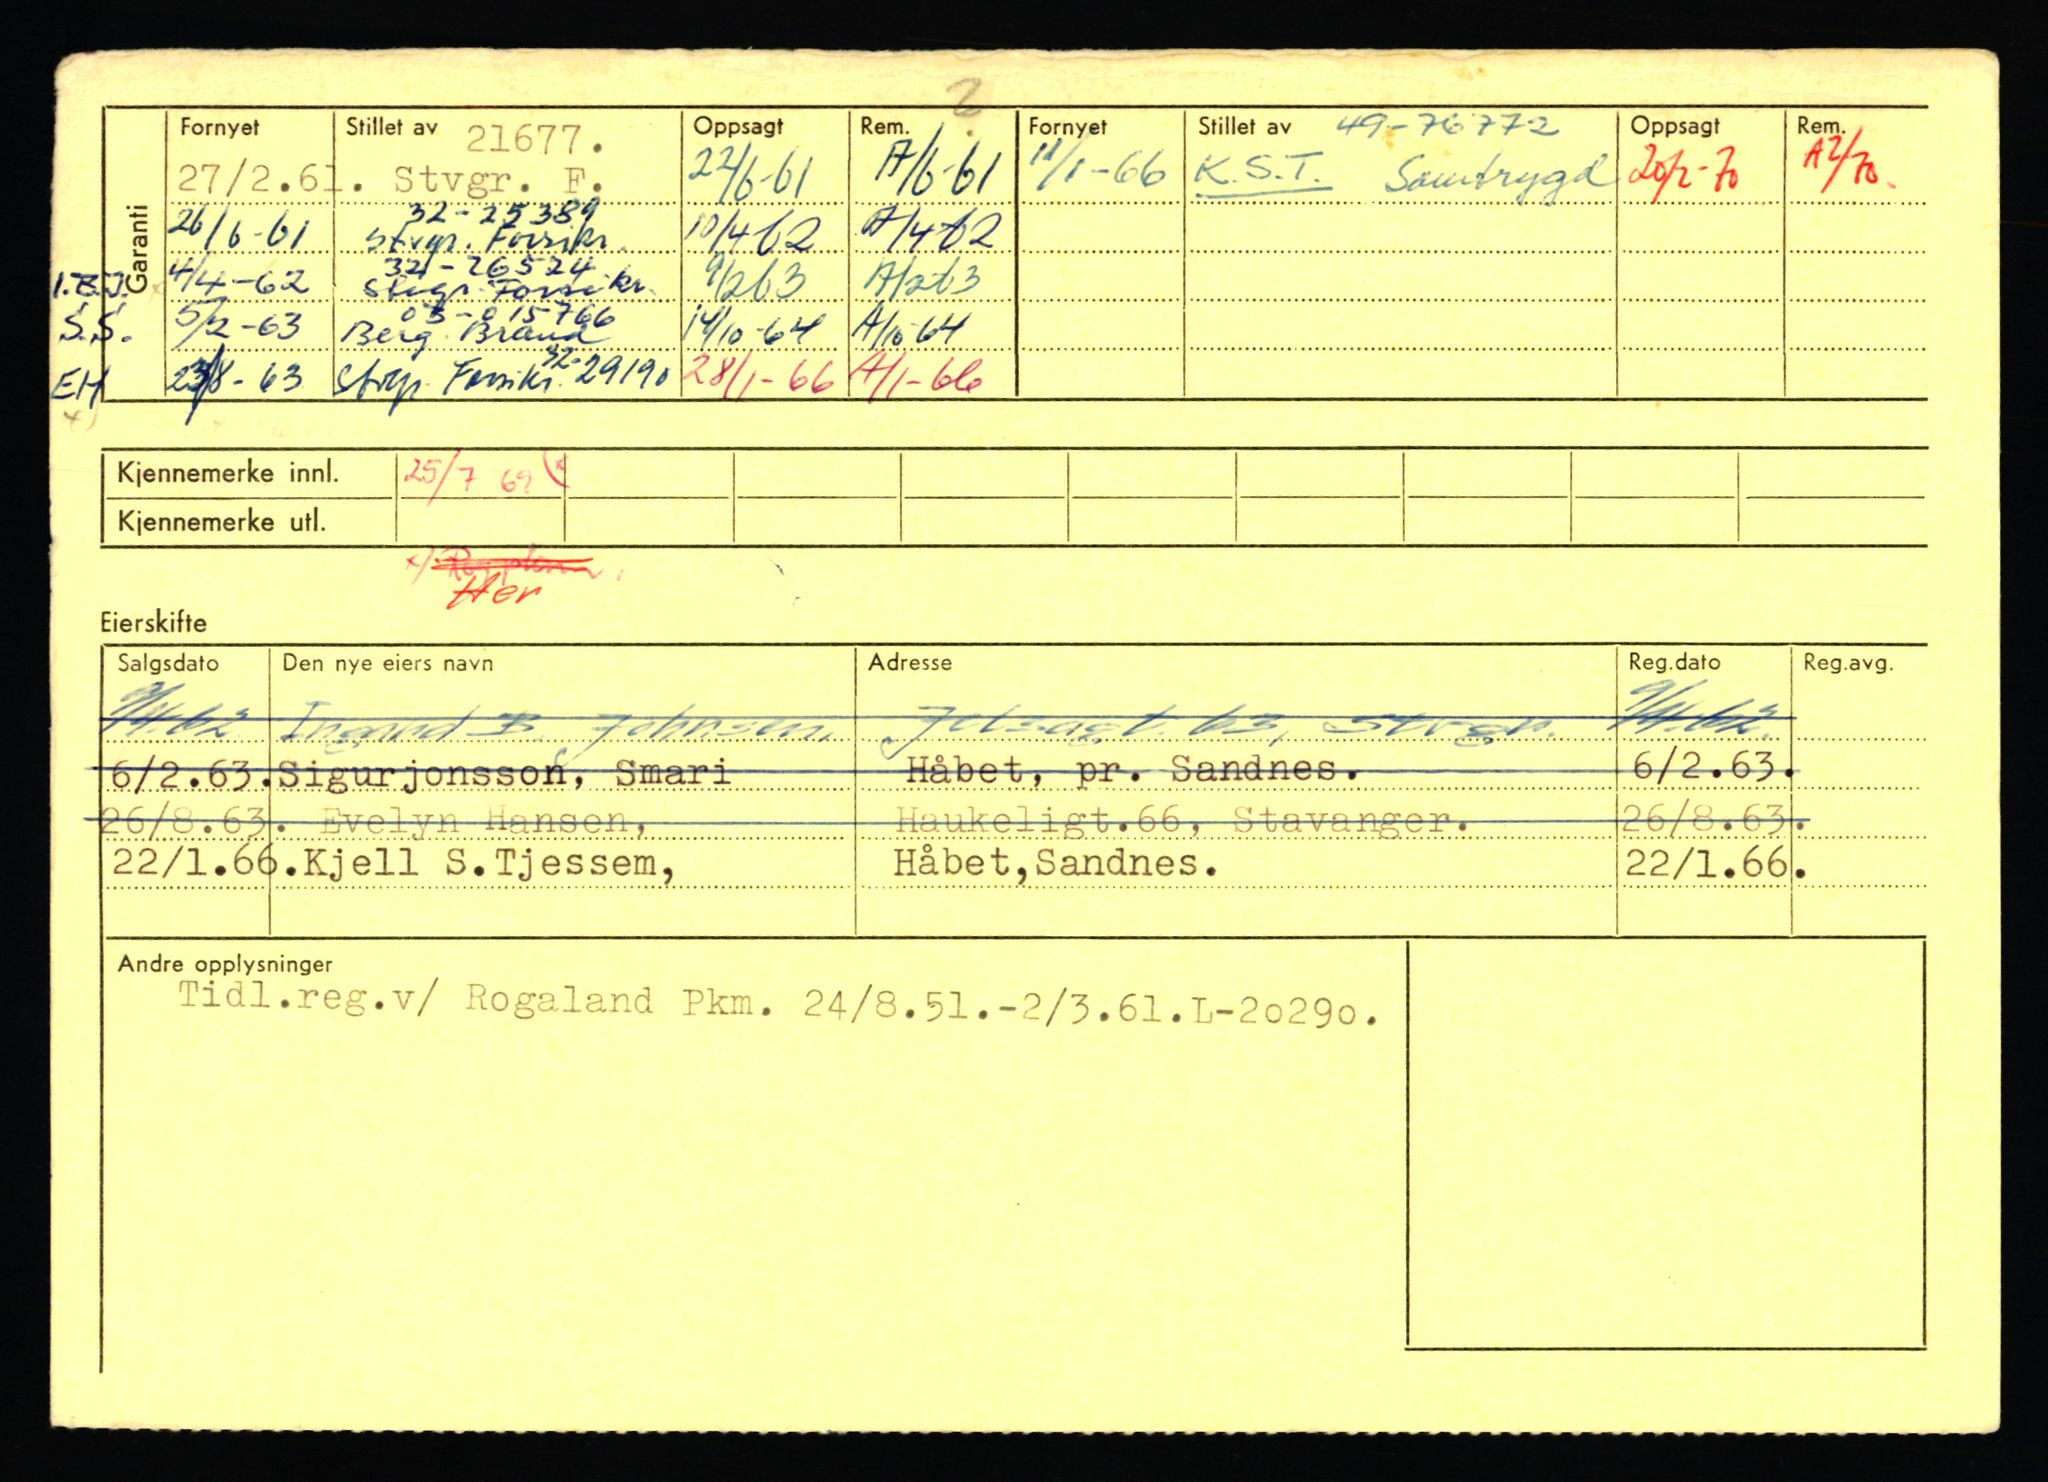 2
Garanti
Fornyet Stillet av 21677. Oppsagt Rem. Fornyet Stillet av 49-76772 Oppsagt Rem.
27/2.61. Stvgr. F. 22/6-61 A/6-61 11/1-66 K.S.T. Samtrygd 20/2-70 A2/70.
32-25389
26/6-61 Stvgr. Forsikr. 10/4-62 A/4-62
32-26524
I.B.J. 4/4-62 Stvgr. Forsikr. 9/2 63 A/2 63
03-015766
S.S. 5/2-63 Berg. Brand 14/10-64 A/10-64
EH 23/8-63 Stvgr. Forsikr. 32-29190 28/1-66 A/1-66
x)
Kjennemerke innl. 25/7 69 (x
Kjennemerke utl.
x)
Her
Eierskifte
Salgsdato Den nye eiers navn Adresse Reg.dato Reg.avg.
9/4.62 B. Johnsen, 63, Stvgr. 9/4.62.
6/2.63. Sigurjonsson, Smari Håbet, pr. Sandnes. 6/2.63.
26/8.63. Evelyn Hansen, Haukeligt.66, Stavanger. 26/8.63.
22/1.66. Kjell S.Tjessem, Håbet,Sandnes. 22/1.66.
Andre opplysninger
Tidl.reg.v/ Rogaland Pkm. 24/8.51.-2/3.61.L-20290.